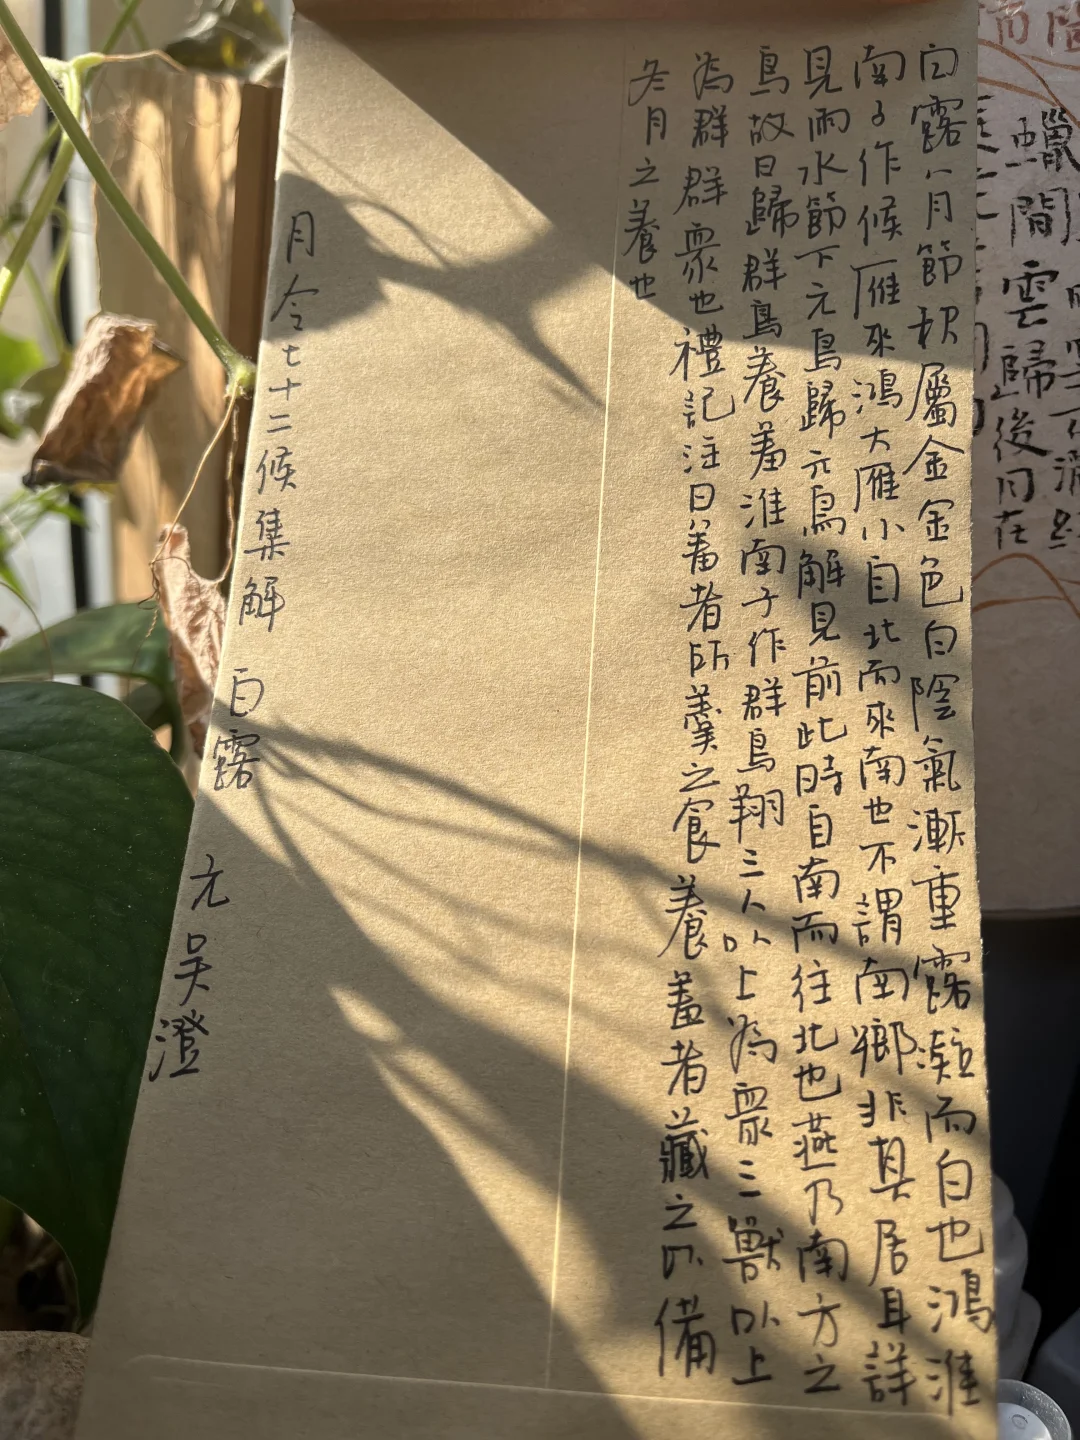 白露八月節秋屬金金色白陰氣漸重露凝而白也鴻淮
南子作候雁來鴻大雁小自北而來南也不謂南鄉非其居耳詳
見雨水節下元鳥歸元鳥解見前此時自南而往北也燕乃南方之
鳥故曰歸群鳥養羞淮南子作群鳥翔三人以上為眾三獸以上
為群群眾也禮記注曰羞者所羹之食養羞者藏之以備
冬月之養也
月令七十二候集解 白露 元 吳澄
蠟
間
雲歸後月在